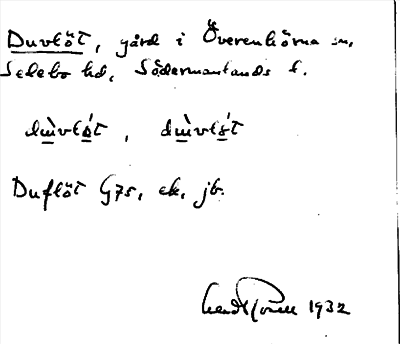 Duvlöt, gård i Överenhörna sn,
Selebo hd, Södermanlands l.
dùvlø̀t, dùvlö́t
Duflöt G75, ek, jb.
1932